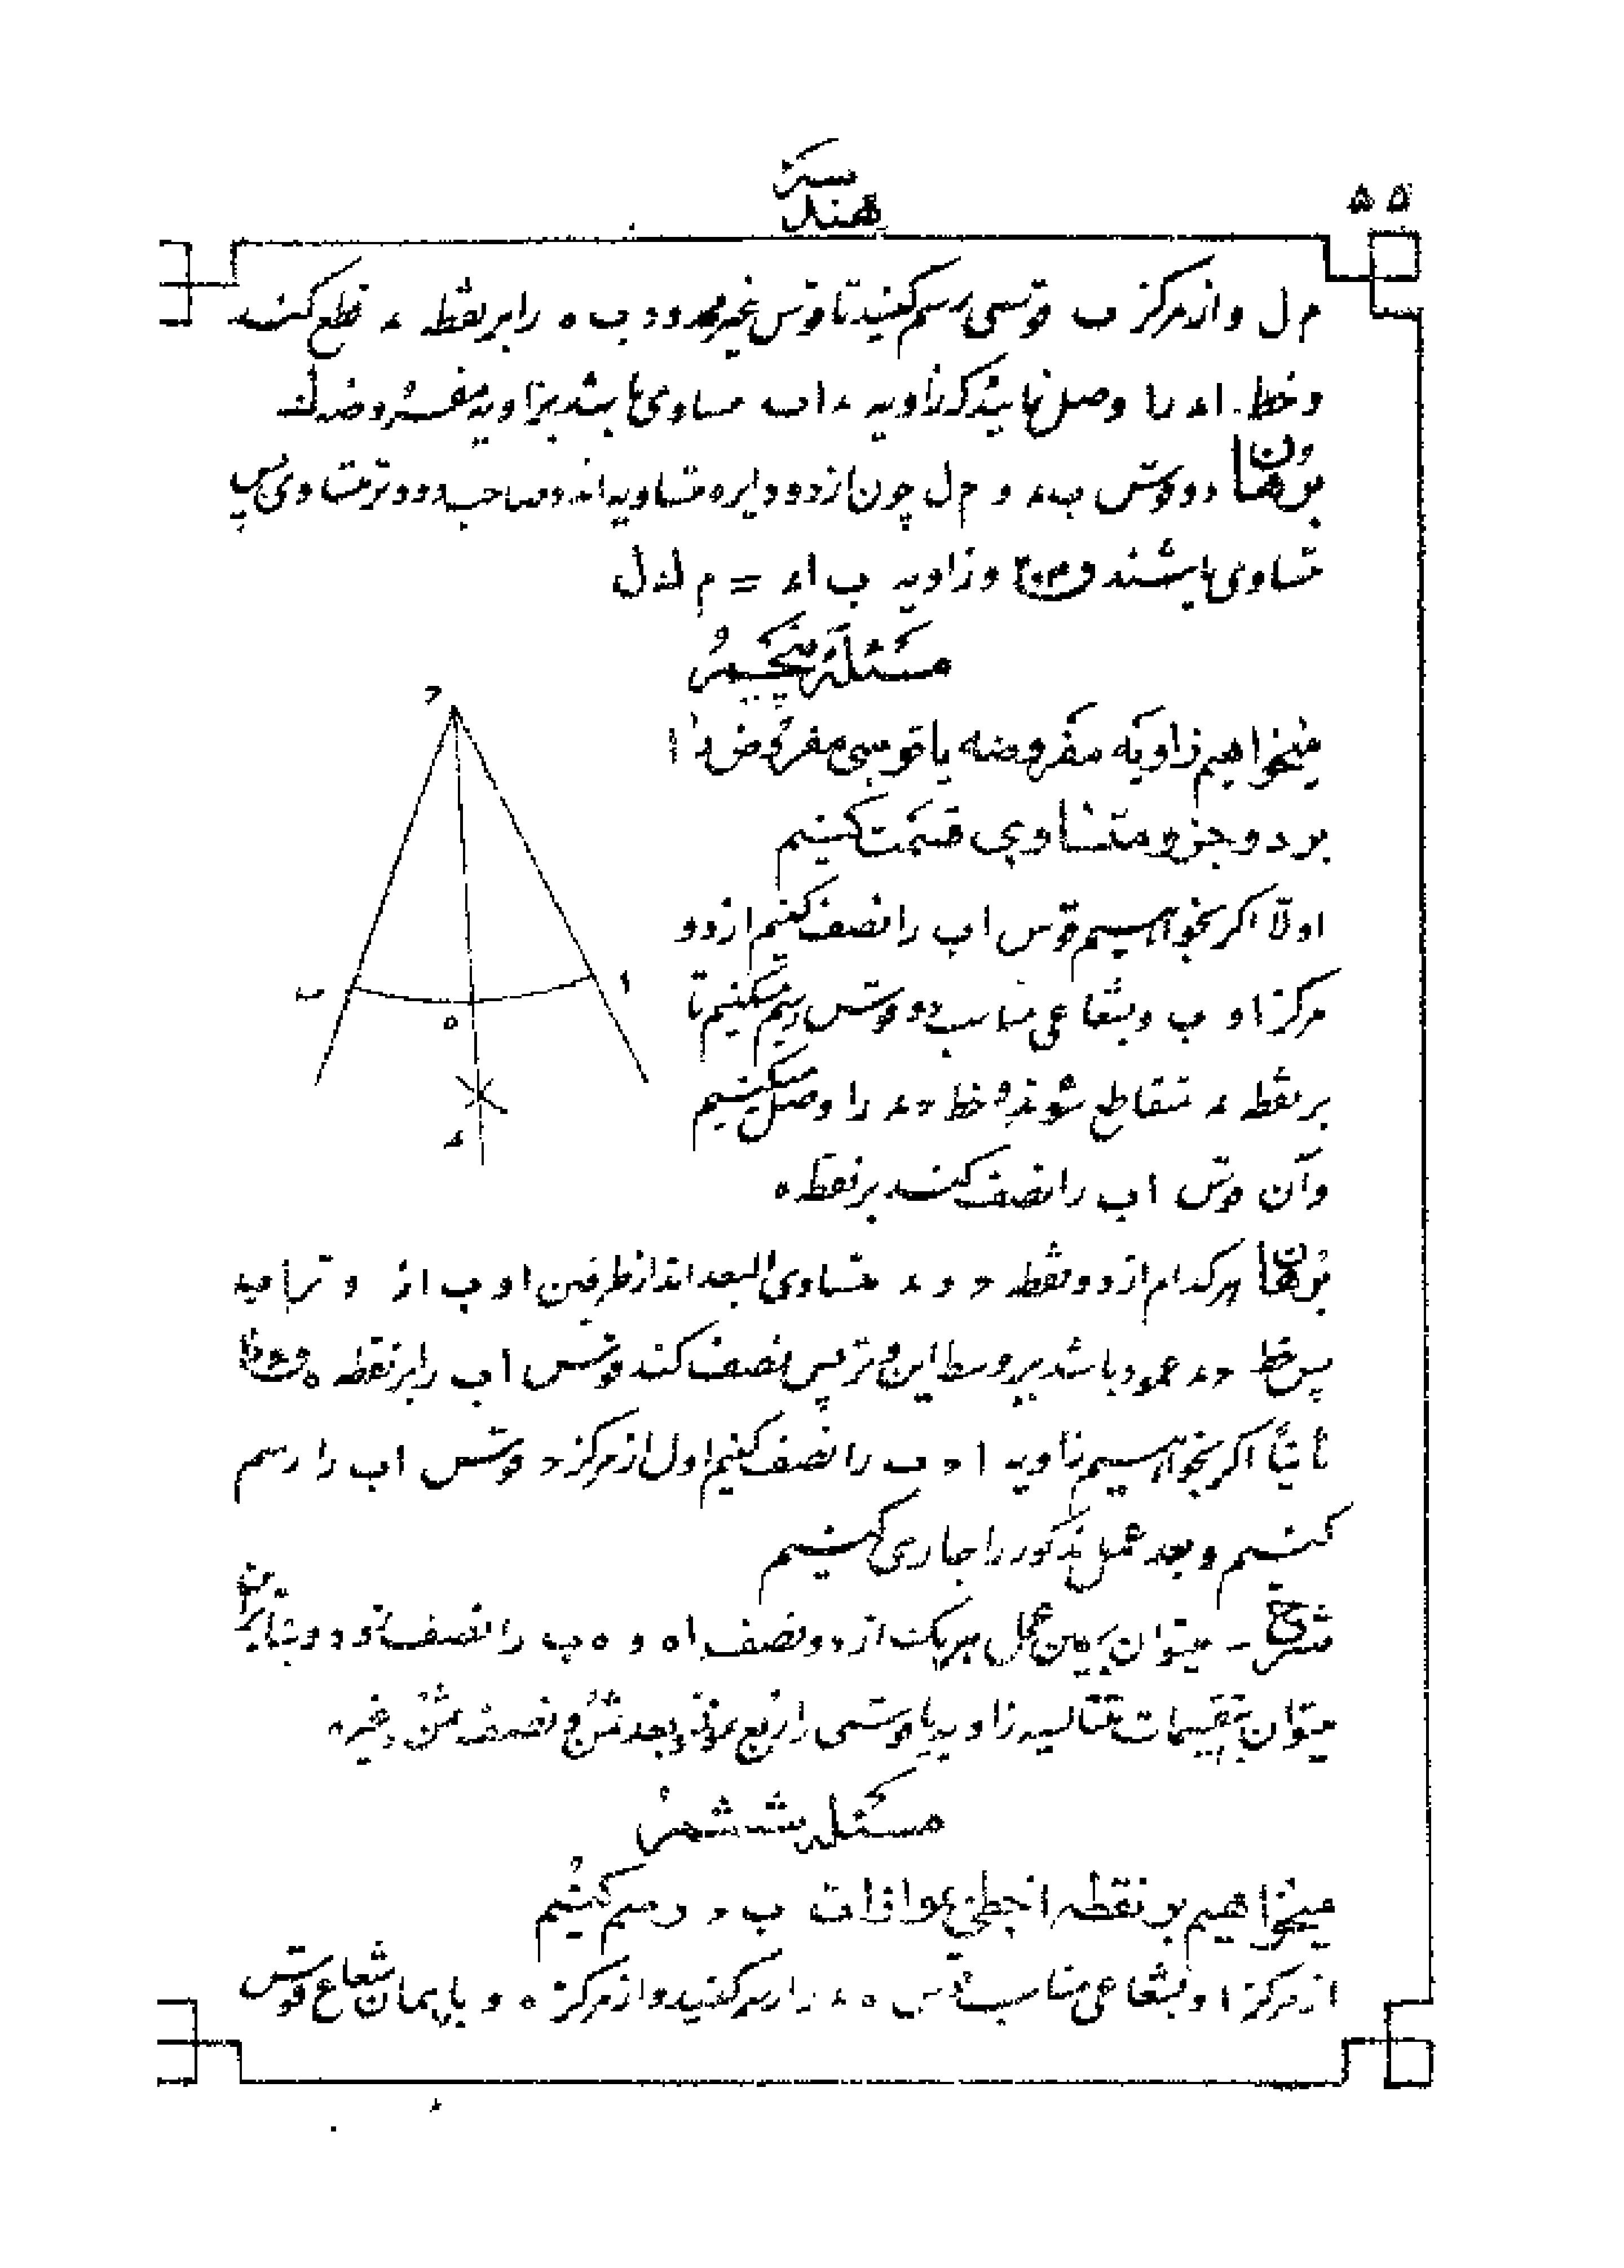 ۵۵
هندسه
م ل و از مرکز ب قوسی رسم کنید تا قوس غیر محدود ب ه را بر نقطه ء قطع کند
و خط اء را وصل نمائید که زاویه ء اب مساوی باشد بزاویه مفروضه ک
برهان دو قوس ب ء و م ل چون از دو دایره متساویه اند و صاحب دو وتر متساوی پس
متساوی باشند و زاویه ب اء = م ک ل
مسئله پنجم
میخواهیم زاویه مفروضه یا قوسی مفروض را
بر دو جزو متساوی قسمت کنیم
اولا اگر بخواهیم قوس اب را نصف کنیم از دو
مرکز ا و ب و بشعاعی مناسب دو قوس رسم میکنیم تا
بر نقطه ء متقاطع شوند و خط حء را وصل میکنیم
و آن قوس اب را نصف کند بر نقطه ه
برهان هر کدام از دو نقطه ح و ء متساوی البعد اند از طرفین ا و ب از وتر اب
پس خط حء عمود باشد بر وسط این وتر پس نصف کند قوس اب را بر نقطه ه
ثانیاً اگر بخواهیم زاویه ا ح ب را نصف کنیم اول از مرکز ح قوس اب را رسم
کنیم و بعد عمل مذکور را جاری کنیم
شرح - میتوان بهمین عمل هر یک از دو نصف اه و ه ب را نصف نمود و بنابراین
میتوان بتقسیمات متتالیه زاویه یا قوسی را ربع نمود و بعد ثمن و نصف ثمن و غیره
مسئله ششم
میخواهیم بر نقطه ا خطی بموازات ب ح رسم کنیم
از مرکز ا و بشعاعی مناسب قوس ه ء را رسم کنید و از مرکز ه و با همان شعاع قوس
ح
ا
ب
ه
ء